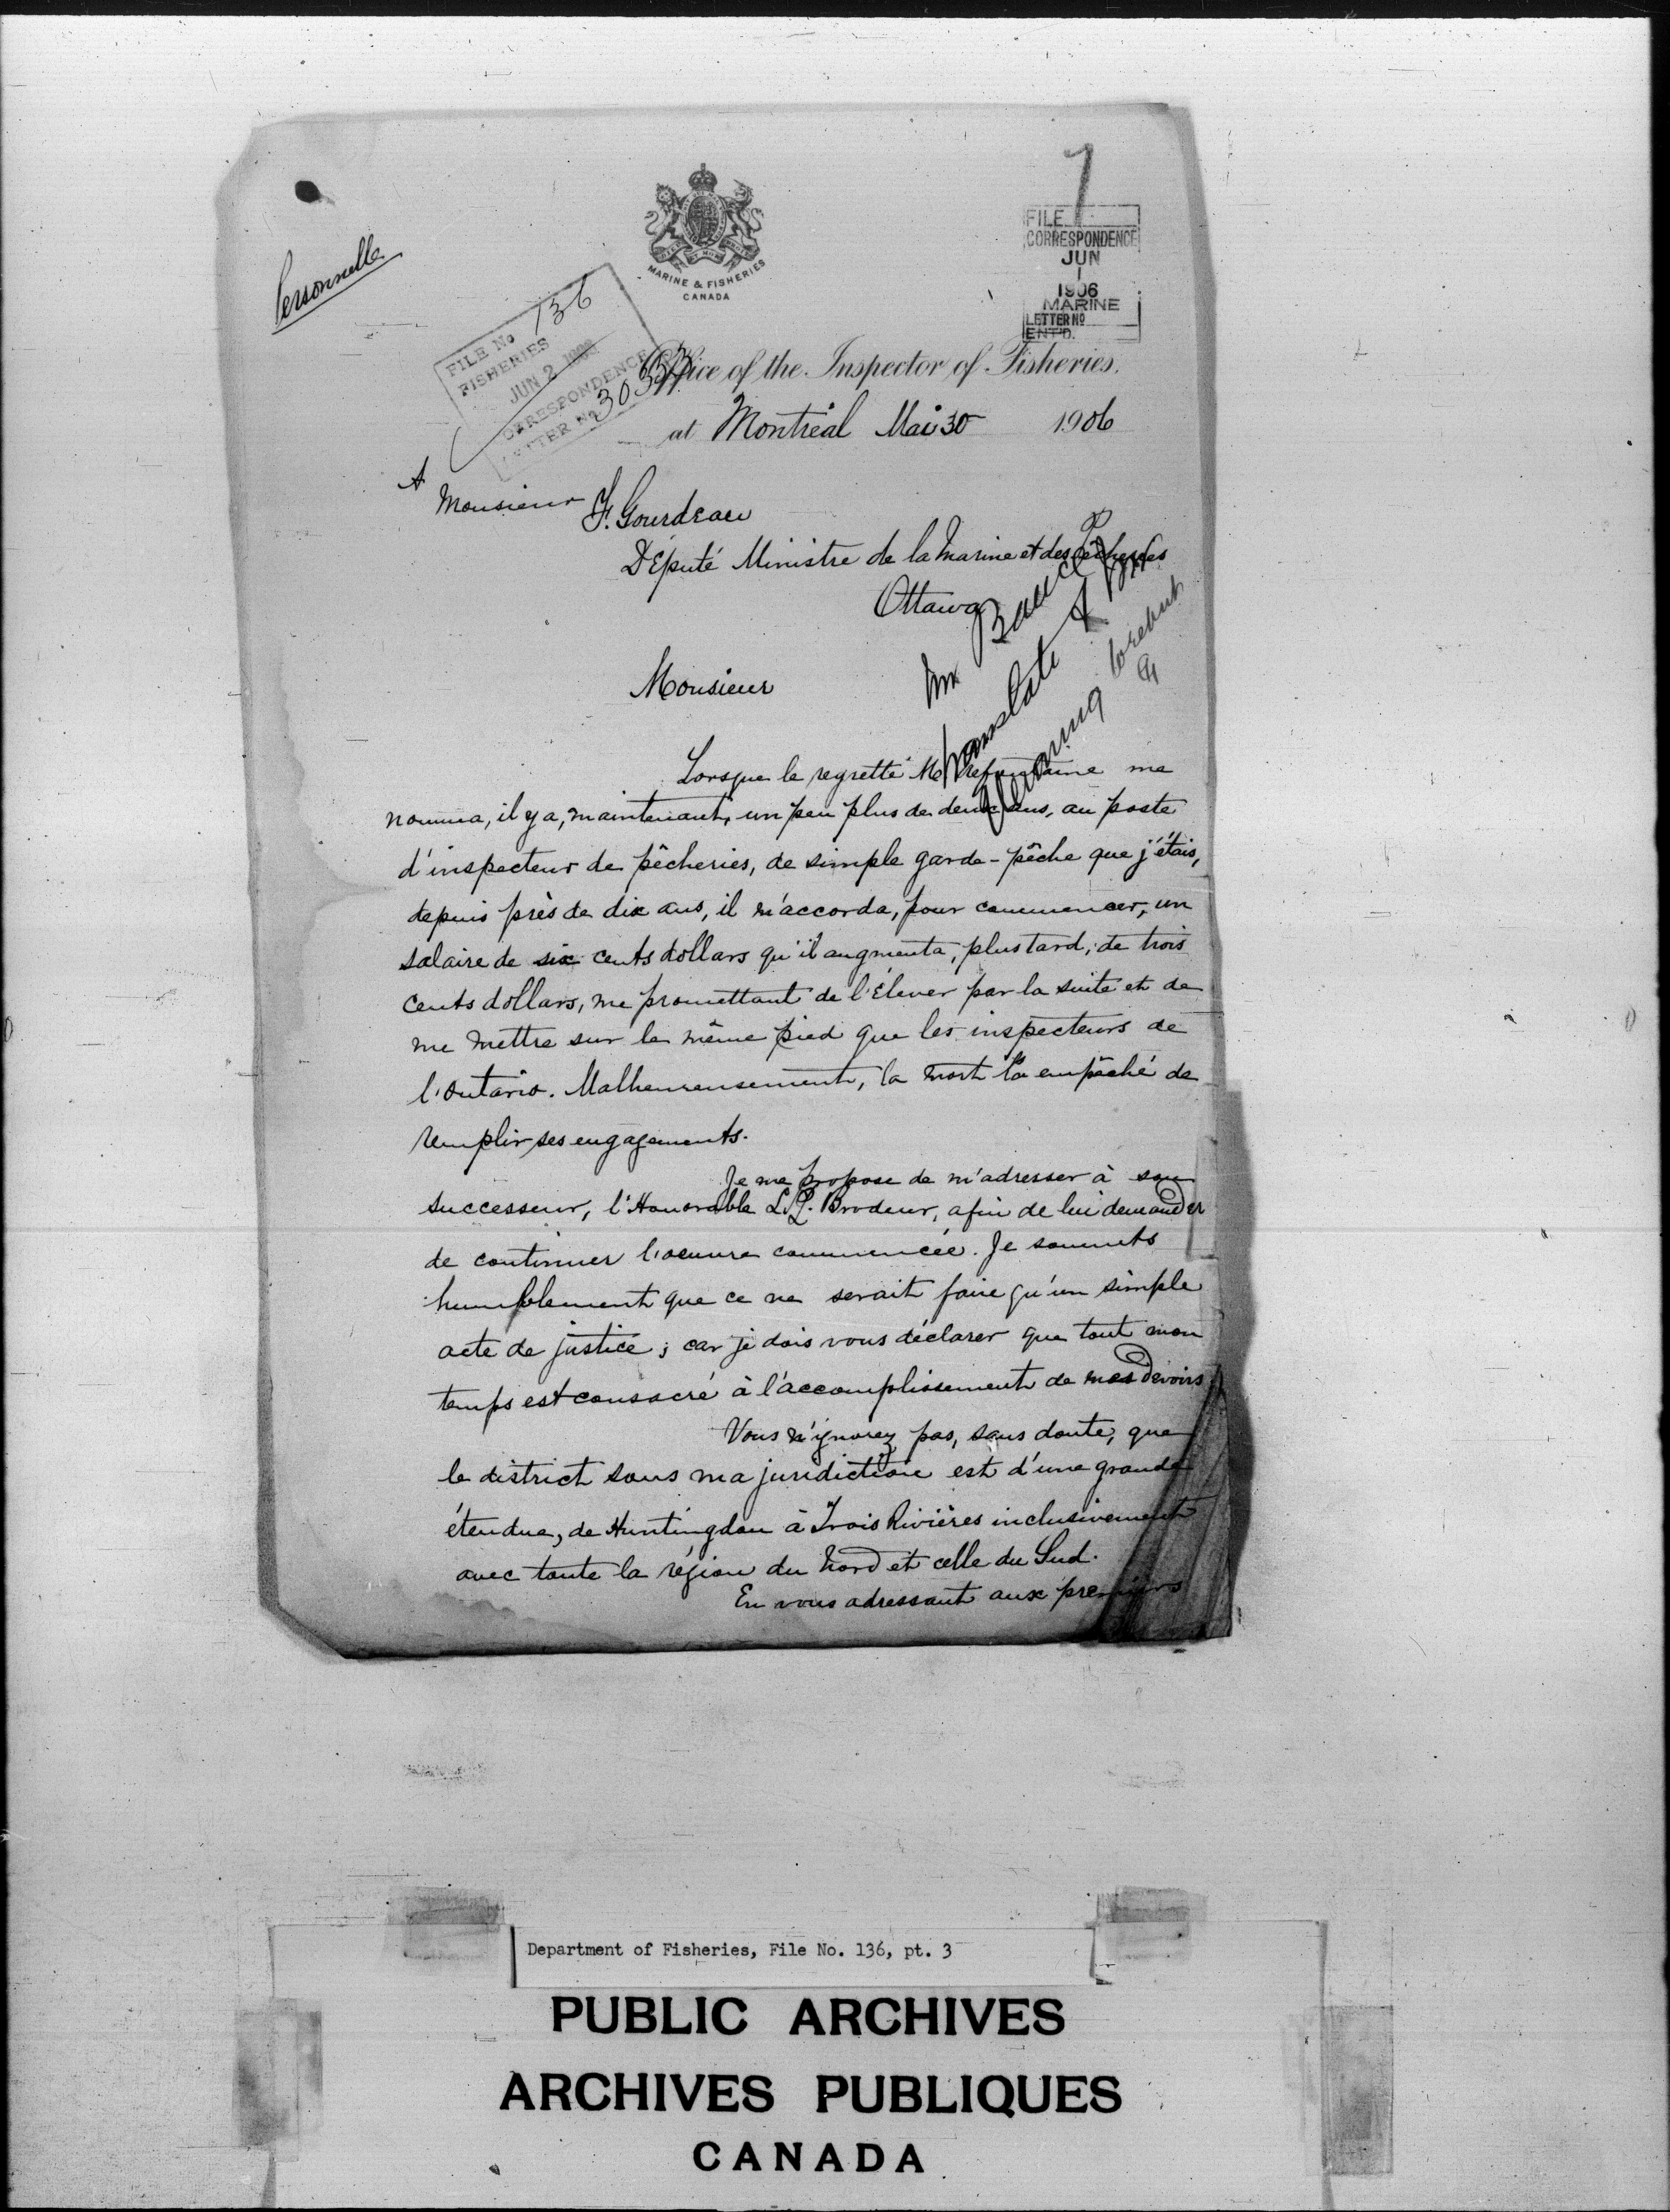 7
FILE
CORRESPONDENCE
JUN
1
1906
MARINE
LETTER No
ENT'D.
Personnelle
MARINE & FISHERIES
CANADA
FILE No 136
FISHERIES
JUN 2 1906
CORRESPONDENCE
LETTER No
Office of the Inspector of Fisheries.
at Montréal Mai 30 1906
A
Monsieur F. Gourdeau
Député Ministre de la Marine et des Pêcheries
Ottawa
Mr
translate &
Monsieur
Lorsque le regretté M Prefontaine me
nomma, il y a, maintenant, un peu plus de deux ans, au poste
d'inspecteur de pêcheries, de simple garde-pêche que j'étais,
depuis près de dix ans, il m'accorda, pour commencer, un
salaire de six cents dollars qu'il augmenta, plus tard, de trois
cents dollars, me promettant de l'élever par la suite et de
me mettre sur le même pied que les inspecteurs de
l'Ontario. Malheureusement, la mort l'a empêché de
remplir ses engagements.
Je me propose de m'adresser à son
successeur, l'Honorable L.P. Brodeur, afin de lui demander
de continuer l'oeuvre commencée. Je soumets
humblement que ce ne serait faire qu'un simple
acte de justice ; car je dois vous déclarer que tout mon
temps est consacré à l'accomplissement de mes devoirs
Vous n'ignorez pas, sans doute, que
le district sous ma juridiction est d'une grande
étendue, de Huntingdon à Trois Rivières inclusivement
avec toute la région du Nord et celle du Sud.
En vous adressant aux premiers
Department of Fisheries, File No. 136, pt. 3
PUBLIC ARCHIVES
ARCHIVES PUBLIQUES
CANADA